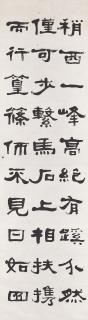 稍西一峰高絕有蹊介然
僅可步繫馬石上相扶攜
而行篁篠仰不見日如四